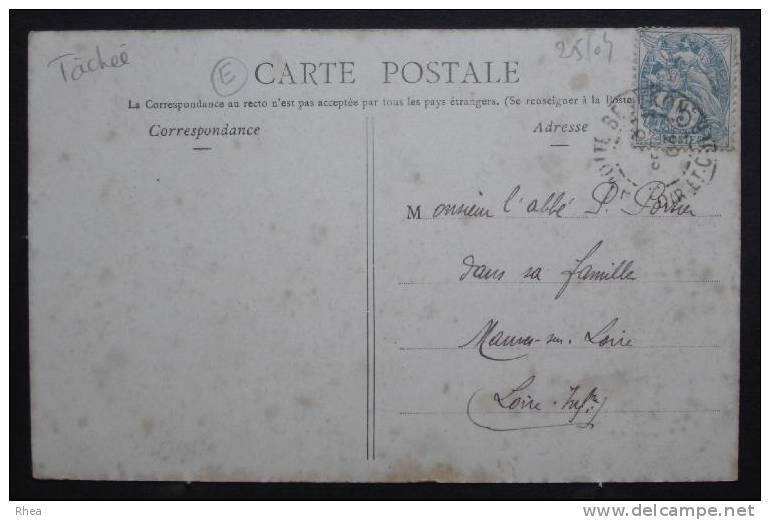 Tâchée
E
25/04
CARTE POSTALE
La Correspondance au recto n'est pas acceptée par tous les pays étrangers. (Se renseigner à la Poste
Correspondance
Adresse
5
POSTE
ET.C
Monsieur l'abbé P.
dans sa famille
sur Loire
(Loire-Infre)
Rhea
delcampe.net